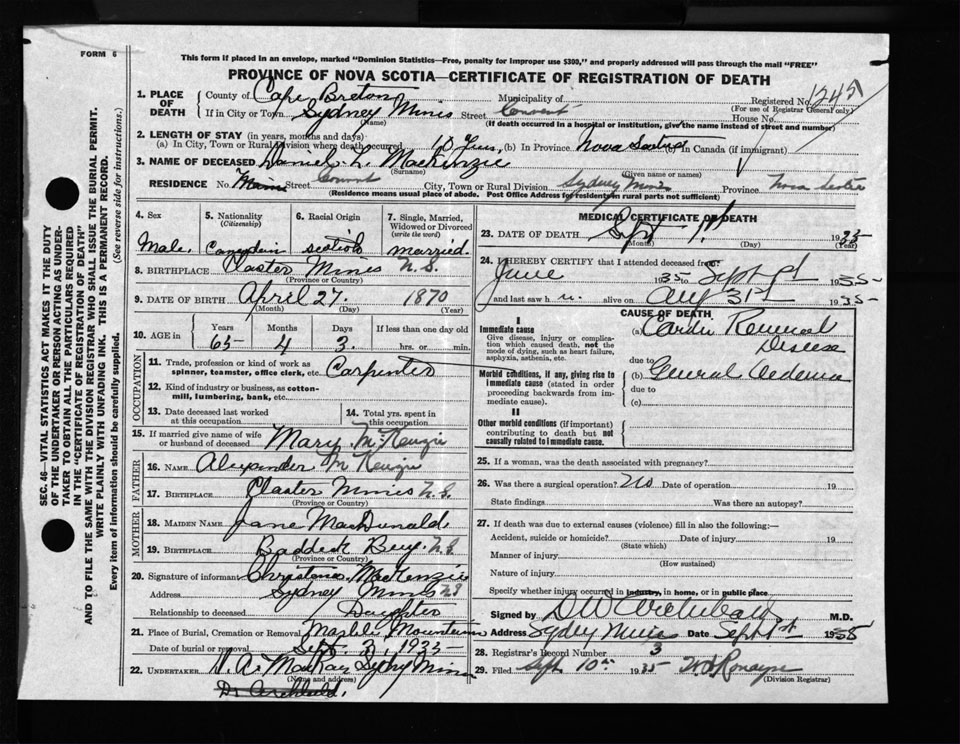 FORM 6
This form if placed in an envelope, marked "Dominion Statistics—Free, penalty for improper use $300," and properly addressed will pass through the mail "FREE"
PROVINCE OF NOVA SCOTIA—CERTIFICATE OF REGISTRATION OF DEATH
1. PLACE OF DEATH County of Cape Breton Municipality of Registered No. 1245
(For use of Registrar General only.)
If in City or Town Sydney Mines Street House No.
(Name) (If death occurred in a hospital or institution, give the name instead of street and number)
2. LENGTH OF STAY (in years, months and days)
(a) In City, Town or Rural Division where death occurred (b) In Province Nova Scotia (c) in Canada (if immigrant)
3. NAME OF DECEASED Daniel L. MacKenzie
(Surname) (Given name or names)
RESIDENCE No. Street City, Town or Rural Division Sydney Mines Province Nova Scotia
(Residence means usual place of abode. Post Office Address for residents in rural parts not sufficient)
4. Sex 5. Nationality (Citizenship) 6. Racial Origin 7. Single, Married, Widowed or Divorced (write the word)
Male. Canadian Scotish married.
8. BIRTHPLACE Plaster Mines N.S.
(Province or Country)
9. DATE OF BIRTH April 27. 1870
(Month) (Day) (Year)
10. AGE in Years Months Days If less than one day old
65 4 3. hrs. or min.
OCCUPATION
11. Trade, profession or kind of work as spinner, teamster, office clerk, etc. Carpenter
12. Kind of industry or business, as cotton-mill, lumbering, bank, etc.
13. Date deceased last worked at this occupation 14. Total yrs. spent in this occupation
15. If married give name of wife or husband of deceased Mary McKenzie
FATHER
16. NAME Alexander McKenzie
17. BIRTHPLACE Plaster Mines N.S.
(Province or Country)
MOTHER
18. MAIDEN NAME Jane MacDonald
19. BIRTHPLACE Baddeck Bay. N.S
(Province or Country)
20. Signature of informant Christena MacKenzie
Address Sydney Mines NS
Relationship to deceased Daughter
21. Place of Burial, Cremation or Removal Mountain
Date of burial or removal Sept. 3, 1935
22. UNDERTAKER A. MacKay Sydney Mines
(Name and address)
Dr Archibald.
MEDICAL CERTIFICATE OF DEATH
23. DATE OF DEATH Sept 1st 1935
(Month) (Day) (Year)
24. I HEREBY CERTIFY that I attended deceased from:
June 1935 to Sept 1st 1935
and last saw h m. alive on Aug 31st 1935
CAUSE OF DEATH
I
Immediate cause (a) Cardio Disease
Give disease, injury or complication which caused death, not the mode of dying, such as heart failure, asphyxia, asthenia, etc.
due to
Morbid conditions, if any, giving rise to immediate cause (stated in order proceeding backwards from immediate cause). (b) General Oedema
due to
(c)
II
Other morbid conditions (if important) contributing to death but not causally related to immediate cause.
25. If a woman, was the death associated with pregnancy?
26. Was there a surgical operation? No Date of operation 19
State findings Was there an autopsy?
27. If death was due to external causes (violence) fill in also the following:—
Accident, suicide or homicide? Date of injury 19
(State which)
Manner of injury
(How sustained)
Nature of injury
Specify whether injury occurred in industry, in home, or in public place
Signed by D W Archibald M.D.
Address Sydney Mines Date Sept 1st 1935
28. Registrar's Record Number 3
29. Filed Sept 10th 1935 Ronayne
(Division Registrar)
SEC. 46—VITAL STATISTICS ACT MAKES IT THE DUTY
OF THE UNDERTAKER OR PERSON ACTING AS UNDER-
TAKER TO OBTAIN ALL THE PARTICULARS REQUIRED
IN THE "CERTIFICATE OF REGISTRATION OF DEATH"
AND TO FILE THE SAME WITH THE DIVISION REGISTRAR WHO SHALL ISSUE THE BURIAL PERMIT.
WRITE PLAINLY WITH UNFADING INK. THIS IS A PERMANENT RECORD.
Every item of information should be carefully supplied. (See reverse side for instructions.)